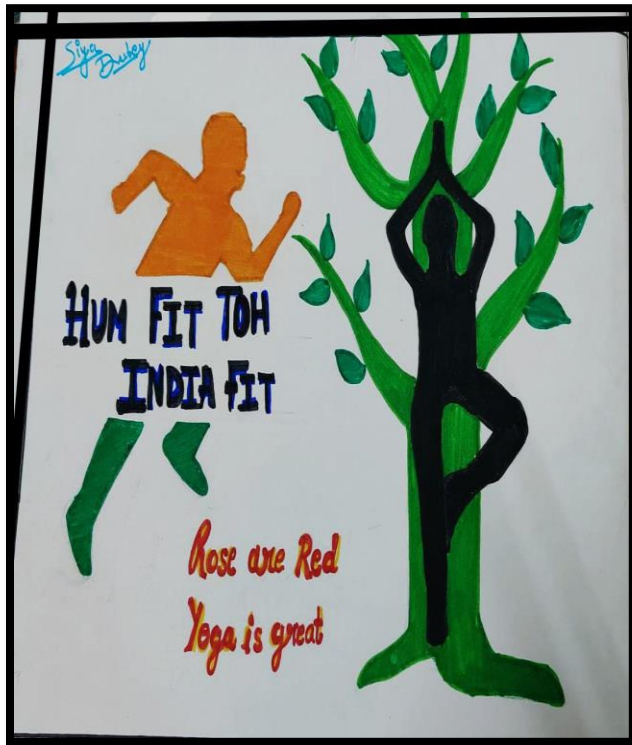 Siya
Dubey
HUM FIT TOH
INDIA FIT
Rose are Red
Yoga is great